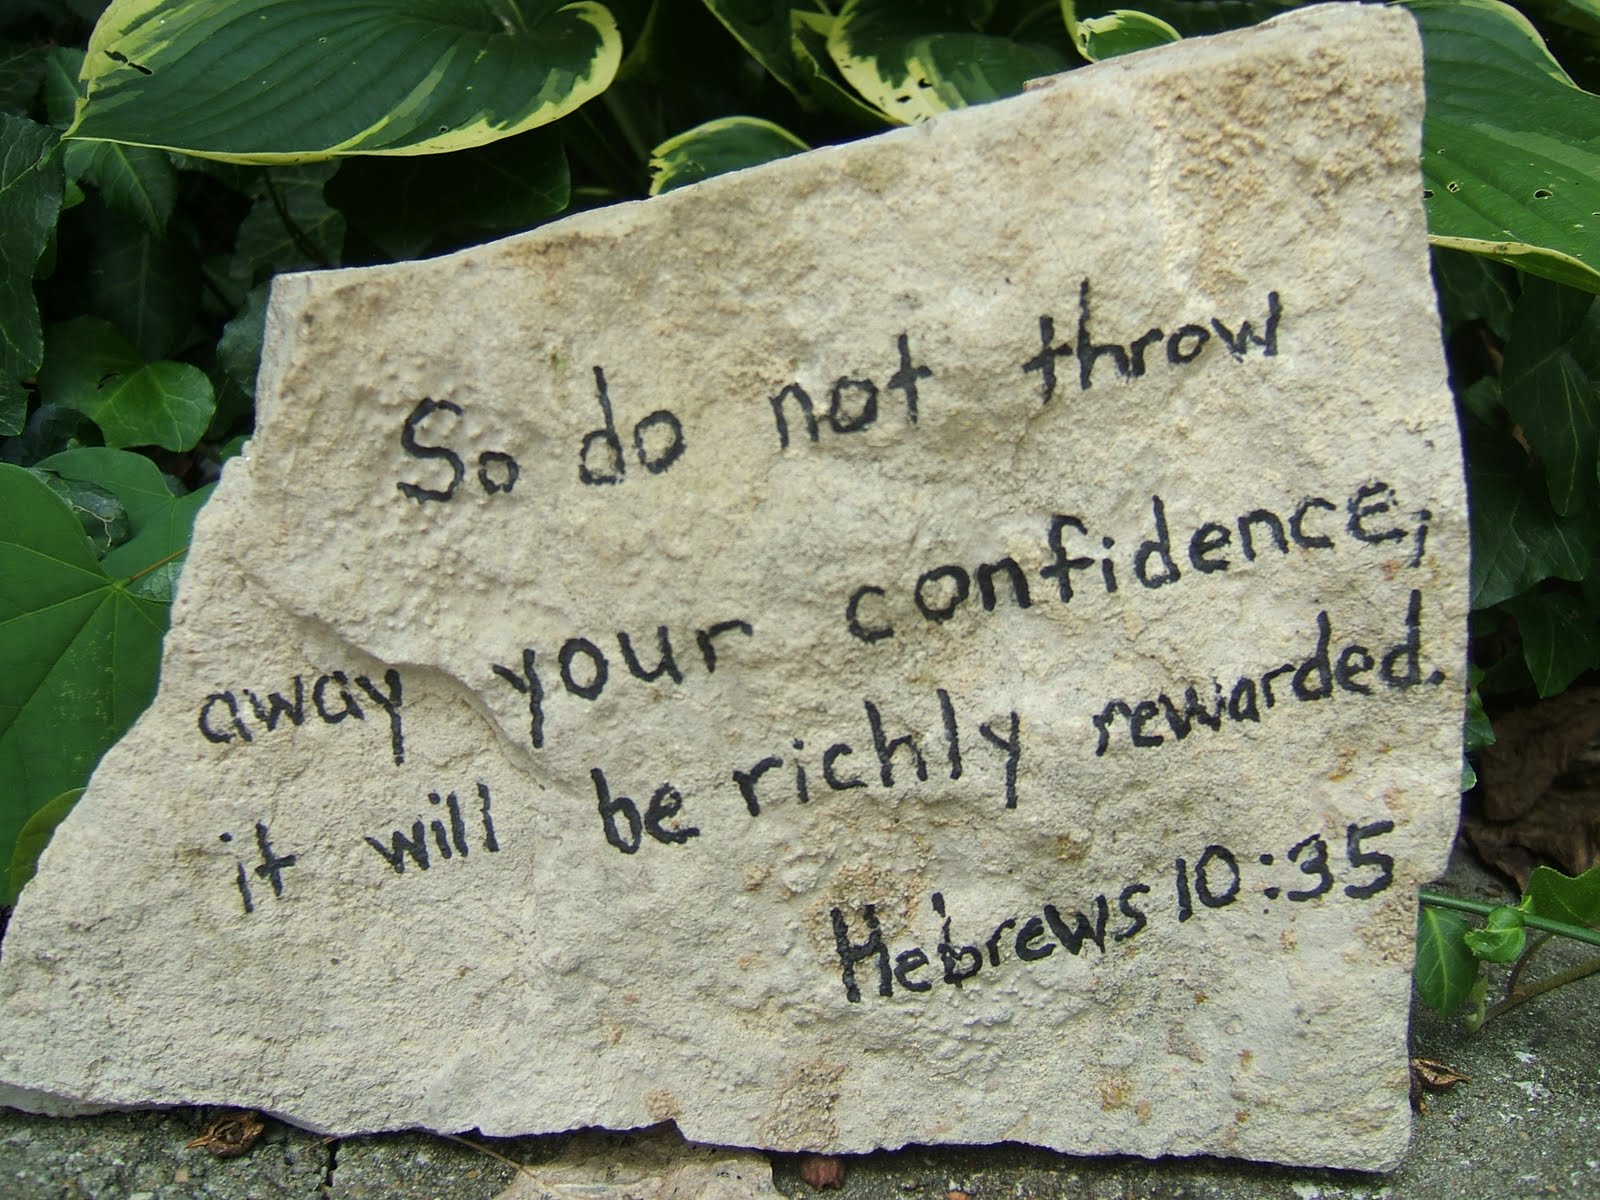 So do not throw
away your confidence;
it will be richly rewarded.
Hebrews 10:35